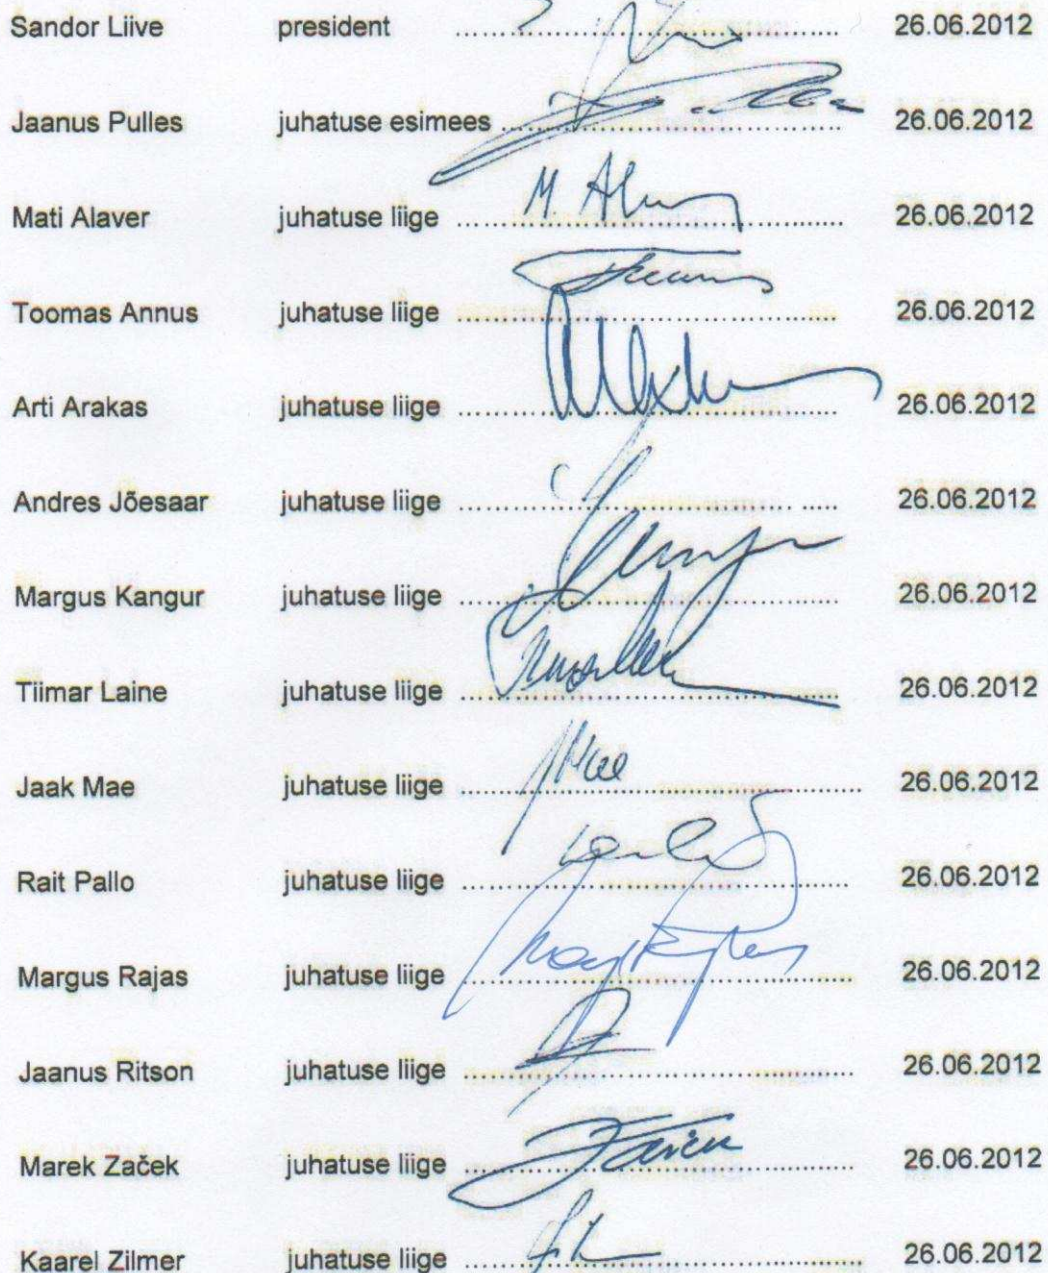 Sandor Liive president .................... 26.06.2012
Jaanus Pulles juhatuse esimees .................... 26.06.2012
Mati Alaver juhatuse liige .................... 26.06.2012
Toomas Annus juhatuse liige .................... 26.06.2012
Arti Arakas juhatuse liige .................... 26.06.2012
Andres Jõesaar juhatuse liige .................... 26.06.2012
Margus Kangur juhatuse liige .................... 26.06.2012
Tiimar Laine juhatuse liige .................... 26.06.2012
Jaak Mae juhatuse liige .................... 26.06.2012
Rait Pallo juhatuse liige .................... 26.06.2012
Margus Rajas juhatuse liige .................... 26.06.2012
Jaanus Ritson juhatuse liige .................... 26.06.2012
Marek Začek juhatuse liige .................... 26.06.2012
Kaarel Zilmer juhatuse liige .................... 26.06.2012